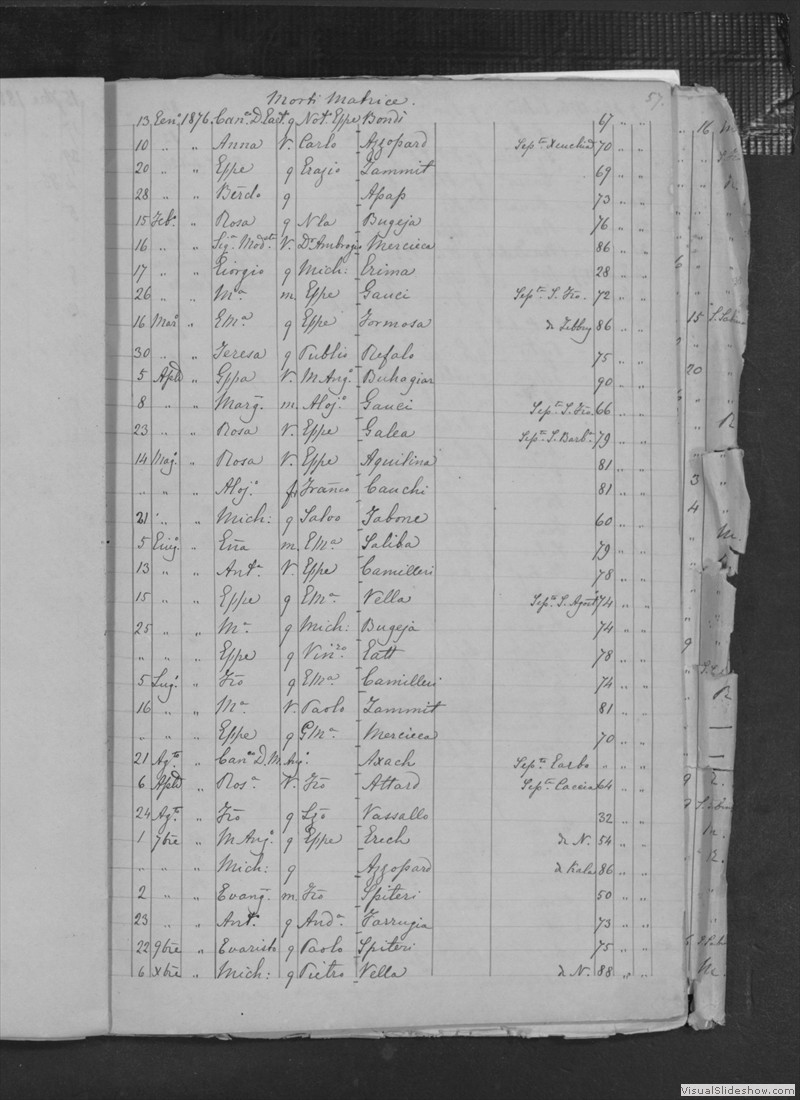 Morti Matrice. 57.
13 Gen.° 1876. Can.co D. Gaet. q Not. Gppe Bondi 67 " "
10 " " Anna V. Carlo Azzopard 70 " "
20 " " Gppe q Grazio Zammit 69 " "
28 " " Bērdo q Apap 73 " "
15 Feb.° " Rosa q Nla Bugeja 76 " "
16 " " Sig.ra Mod.ta V. D.r Ambrogio Mercieca 86 " "
17 " " Giorgio q Mich: Grima 28 " "
26 " " M.a m. Gppe Gauci Sep.ra S. Frō. 72 " "
16 Mar.° " G. M.a q Gppe Formosa da Zebbug 86 " "
30 " " Teresa q Publio Refalo 75 " "
5 Aple " Gppa V. M. Ang.° Buhagiar 90 " "
8 " " Marg. m. Aloj.° Gauci Sep.ra S. Frō. 66 " "
23 " " Rosa V. Gppe Galea Sep.ra S. Barb.a 79 " "
14 Mag.° " Rosa V. Gppe Aquilina 81 " "
" " " Aloj.° Franco Cauchi 81 " "
21 " " Mich: q Salvo Tabone 60 " "
5 Giug.° " m. G. M.a Saliba 79 " "
13 " " Ant.a V. Gppe Camilleri 78 " "
15 " " Gppe q G. M.a Vella Sep.ra S. Agost.° 74 " "
25 " " M.a q Mich: Bugeja 74 " "
" " " Gppe q Vin.zo Gatt 78 " "
5 Lug.° " Frō q G. M.a Camilleri 74 " "
16 " " M.a V. Paolo Zammit 81 " "
" " " Gppe q G. M.a Mercieca 70 " "
21 Ag.to " Can.co D. M. Ang.° Axach " " "
6 Aple " Ros.a V. Frō Attard Sep.ra Caccia 64 " "
24 Ag.to " Frō q Vassallo 32 " "
1 7bre " M. Ang.° q Gppe Grech da N. 54 " "
" " " Mich: q Azzopard da Kala 86 " "
2 " " Evang. m. Frō Spiteri 50 " "
23 " " Ant.° q And.a Farrugia 73 " "
22 9bre " Evaristo q Paolo Spiteri 75 " "
6 Xbre " Mich: q Pietro Vella da N. 88 " "
VisualSlideshow.com